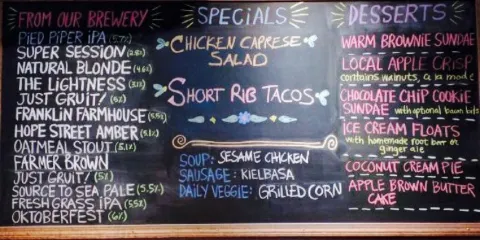 FROM OUR BREWERY
PIED PIPER IPA (5.7%)
SUPER SESSION (2.8%)
NATURAL BLONDE (4.6%)
THE LIGHTNESS
JUST GRUIT!
FRANKLIN FARMHOUSE (5.5%)
HOPE STREET AMBER (5.1%)
OATMEAL STOUT (5.1%)
FARMER BROWN
JUST GRUIT! (5%)
SOURCE TO SEA PALE (5.5%)
FRESH GRASS IPA (5.5%)
OKTOBERFEST (6%)
SPECIALS
CHICKEN CAPRESE
SALAD
SHORT RIB TACOS
SOUP: SESAME CHICKEN
SAUSAGE: KIELBASA
DAILY VEGGIE: GRILLED CORN
DESSERTS
WARM BROWNIE SUNDAE
LOCAL APPLE CRISP
contains walnuts, a la mode
CHOCOLATE CHIP COOKIE
SUNDAE with optional bacon bits
ICE CREAM FLOATS
with homemade root beer or
ginger ale
COCONUT CREAM PIE
APPLE BROWN BUTTER
CAKE